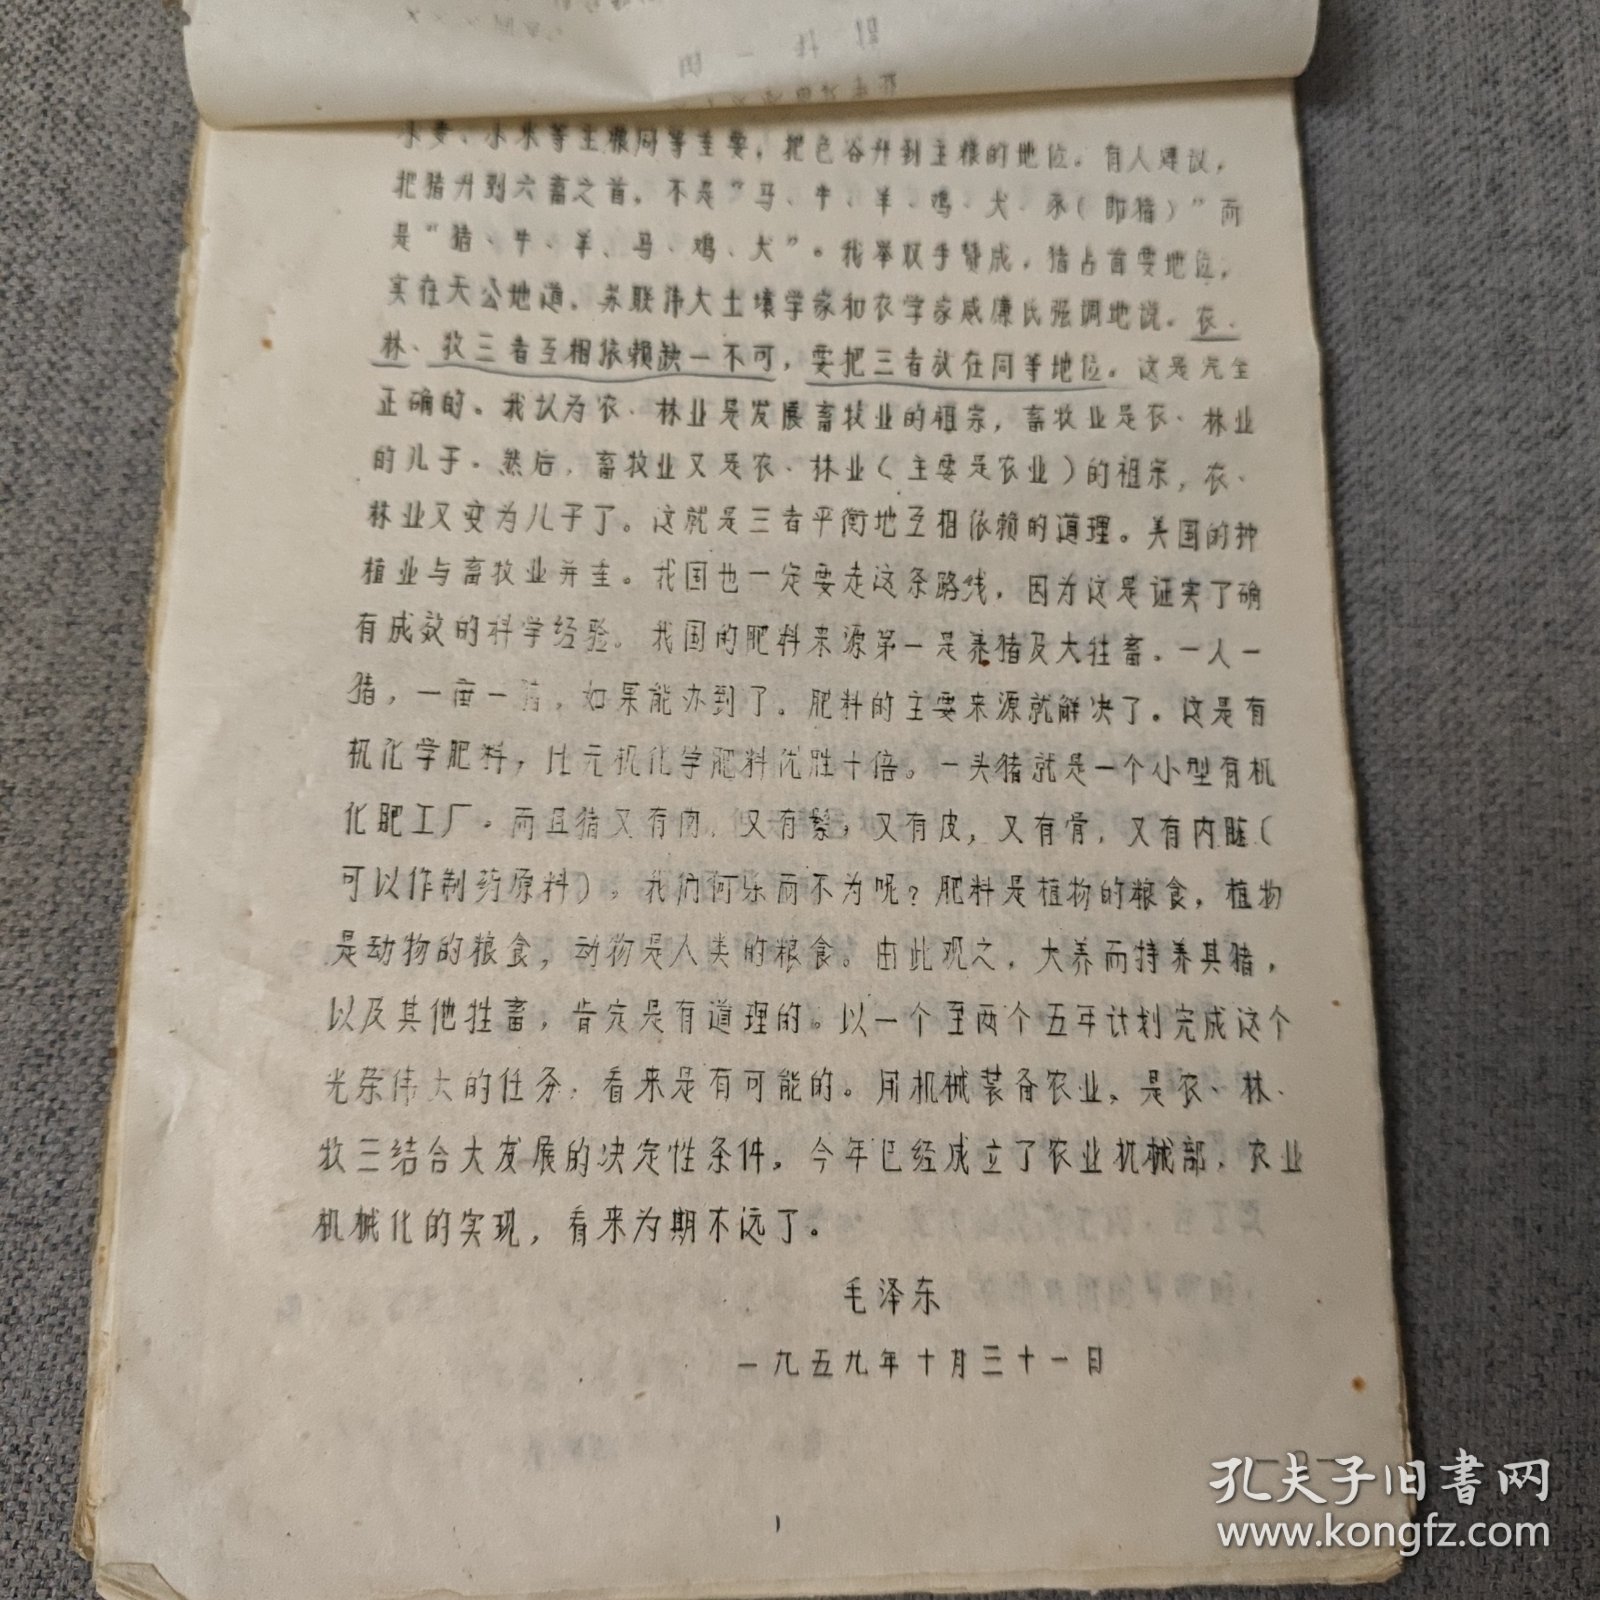 小麦、小米等主粮同等重要，把包谷升到主粮的地位。有人建议，
把猪升到六畜之首，不是“马、牛、羊、鸡、犬、豕（即猪）”而
是“猪、牛、羊、马、鸡、犬”。我举双手赞成，猪占首要地位，
实在天公地道。苏联伟大土壤学家和农学家威廉氏强调地说，农、
林、牧三者互相依赖缺一不可，要把三者放在同等地位。这是完全
正确的。我认为农、林业是发展畜牧业的祖宗，畜牧业是农、林业
的儿子。然后，畜牧业又是农、林业（主要是农业）的祖宗，农、
林业又变为儿子了。这就是三者平衡地互相依赖的道理。美国的种
植业与畜牧业并重。我国也一定要走这条路线，因为这是证实了确
有成效的科学经验。我国的肥料来源第一是养猪及大牲畜。一人一
猪，一亩一猪，如果能办到了。肥料的主要来源就解决了。这是有
机化学肥料，比无机化学肥料优胜十倍。一头猪就是一个小型有机
化肥工厂。而且猪又有肉，又有鬃，又有皮，又有骨，又有内脏（
可以作制药原料）。我们何乐而不为呢？肥料是植物的粮食，植物
是动物的粮食，动物是人类的粮食。由此观之，大养而特养其猪，
以及其他牲畜，肯定是有道理的。以一个至两个五年计划完成这个
光荣伟大的任务，看来是有可能的。用机械装备农业，是农、林、
牧三结合大发展的决定性条件。今年已经成立了农业机械部，农业
机械化的实现，看来为期不远了。
毛泽东
一九五九年十月三十一日
孔夫子旧书网
www.kongfz.com